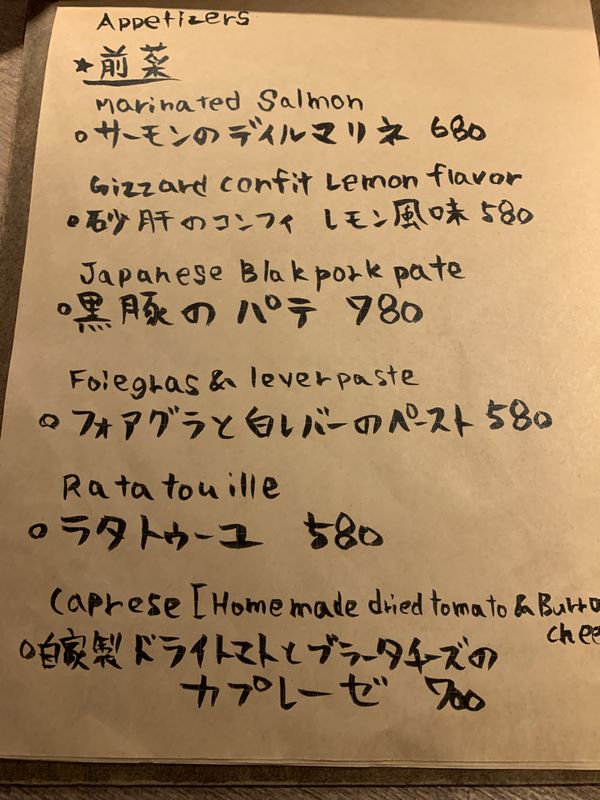 Appetizers
★前菜
Marinated Salmon
○サーモンのディルマリネ 680
Gizzard confit Lemon flavor
○砂肝のコンフィ レモン風味 580
Japanese Blakpork pate
○黒豚のパテ 780
Foiegras & leverpaste
○フォアグラと白レバーのペースト 580
Ratatouille
○ラタトゥーユ 580
Caprese [Homemade dried tomato &
○自家製ドライトマトとブラータチーズの
カプレーゼ 700